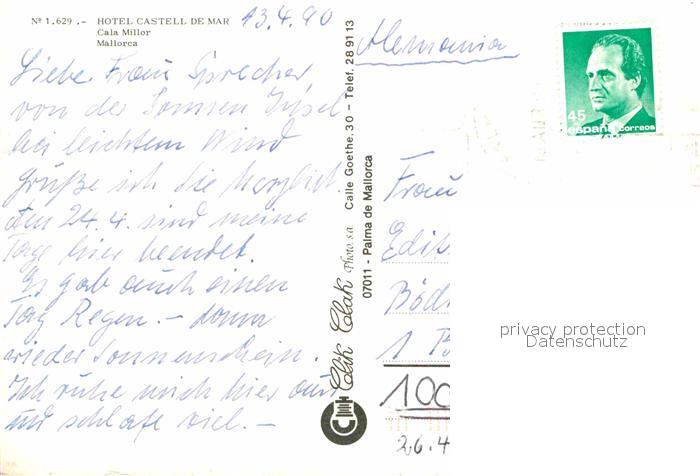 Nº 1.629 .- HOTEL CASTELL DE MAR
Cala Millor
Mallorca
13.4.90
Liebe Frau Sprecher
von der Sonnen Insel
bei leichtem Wind
grüße ich Sie herzlich
den 24.4. sind meine
Tage hier beendet.
Es gab auch einen
Tag Regen. – dann
wieder Sonnenschein.
Ich ruhe mich hier aus
und schlafe viel. –
Clik Clak Photo, s.a. Calle Goethe, 30 – Telef. 28 91 13
07011 - Palma de Mallorca
Alemania
45
españa correos
Frau
Edit
Böd
1 B
100
26.4
privacy protection
Datenschutz